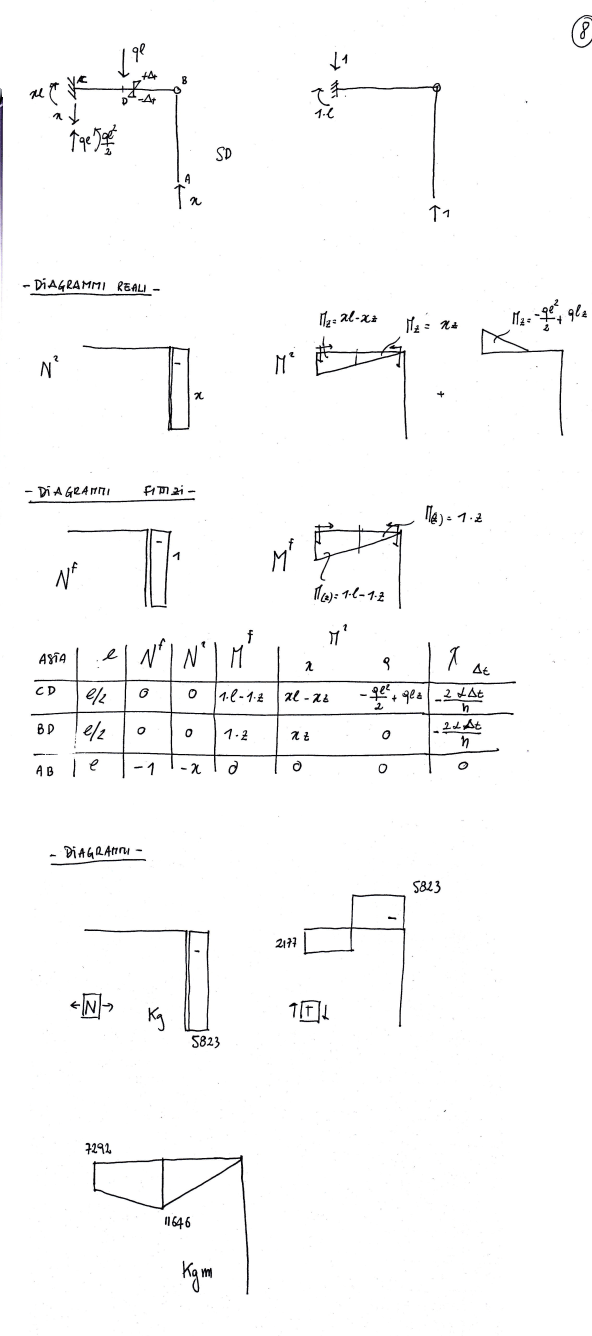 8
ql
+Δt
-Δt
B
D
xl
x
ql
ql²/2
SD
A
x
1
1·l
1
- DIAGRAMMI REALI -
M_z = xl - xz
M_z = xz
M_z = -ql²/2 + qlz
N²
-
x
M²
+
- DIAGRAMMI FITTIZI -
-
1
N^f
M^f
M(z) = 1·z
M(z) = 1·l - 1·z
ASTA l N^f N² M^f M² χ Δt
x q
CD l/2 0 0 1·l-1·z xl-xz -ql²/2 + qlz -2αΔt/h
BD l/2 0 0 1·z xz 0 -2αΔt/h
AB l -1 -x 0 0 0 0
- DIAGRAMMI -
5823
-
2177
-
←N→ Kg
5823
↑T↓
7292
11646
Kgm